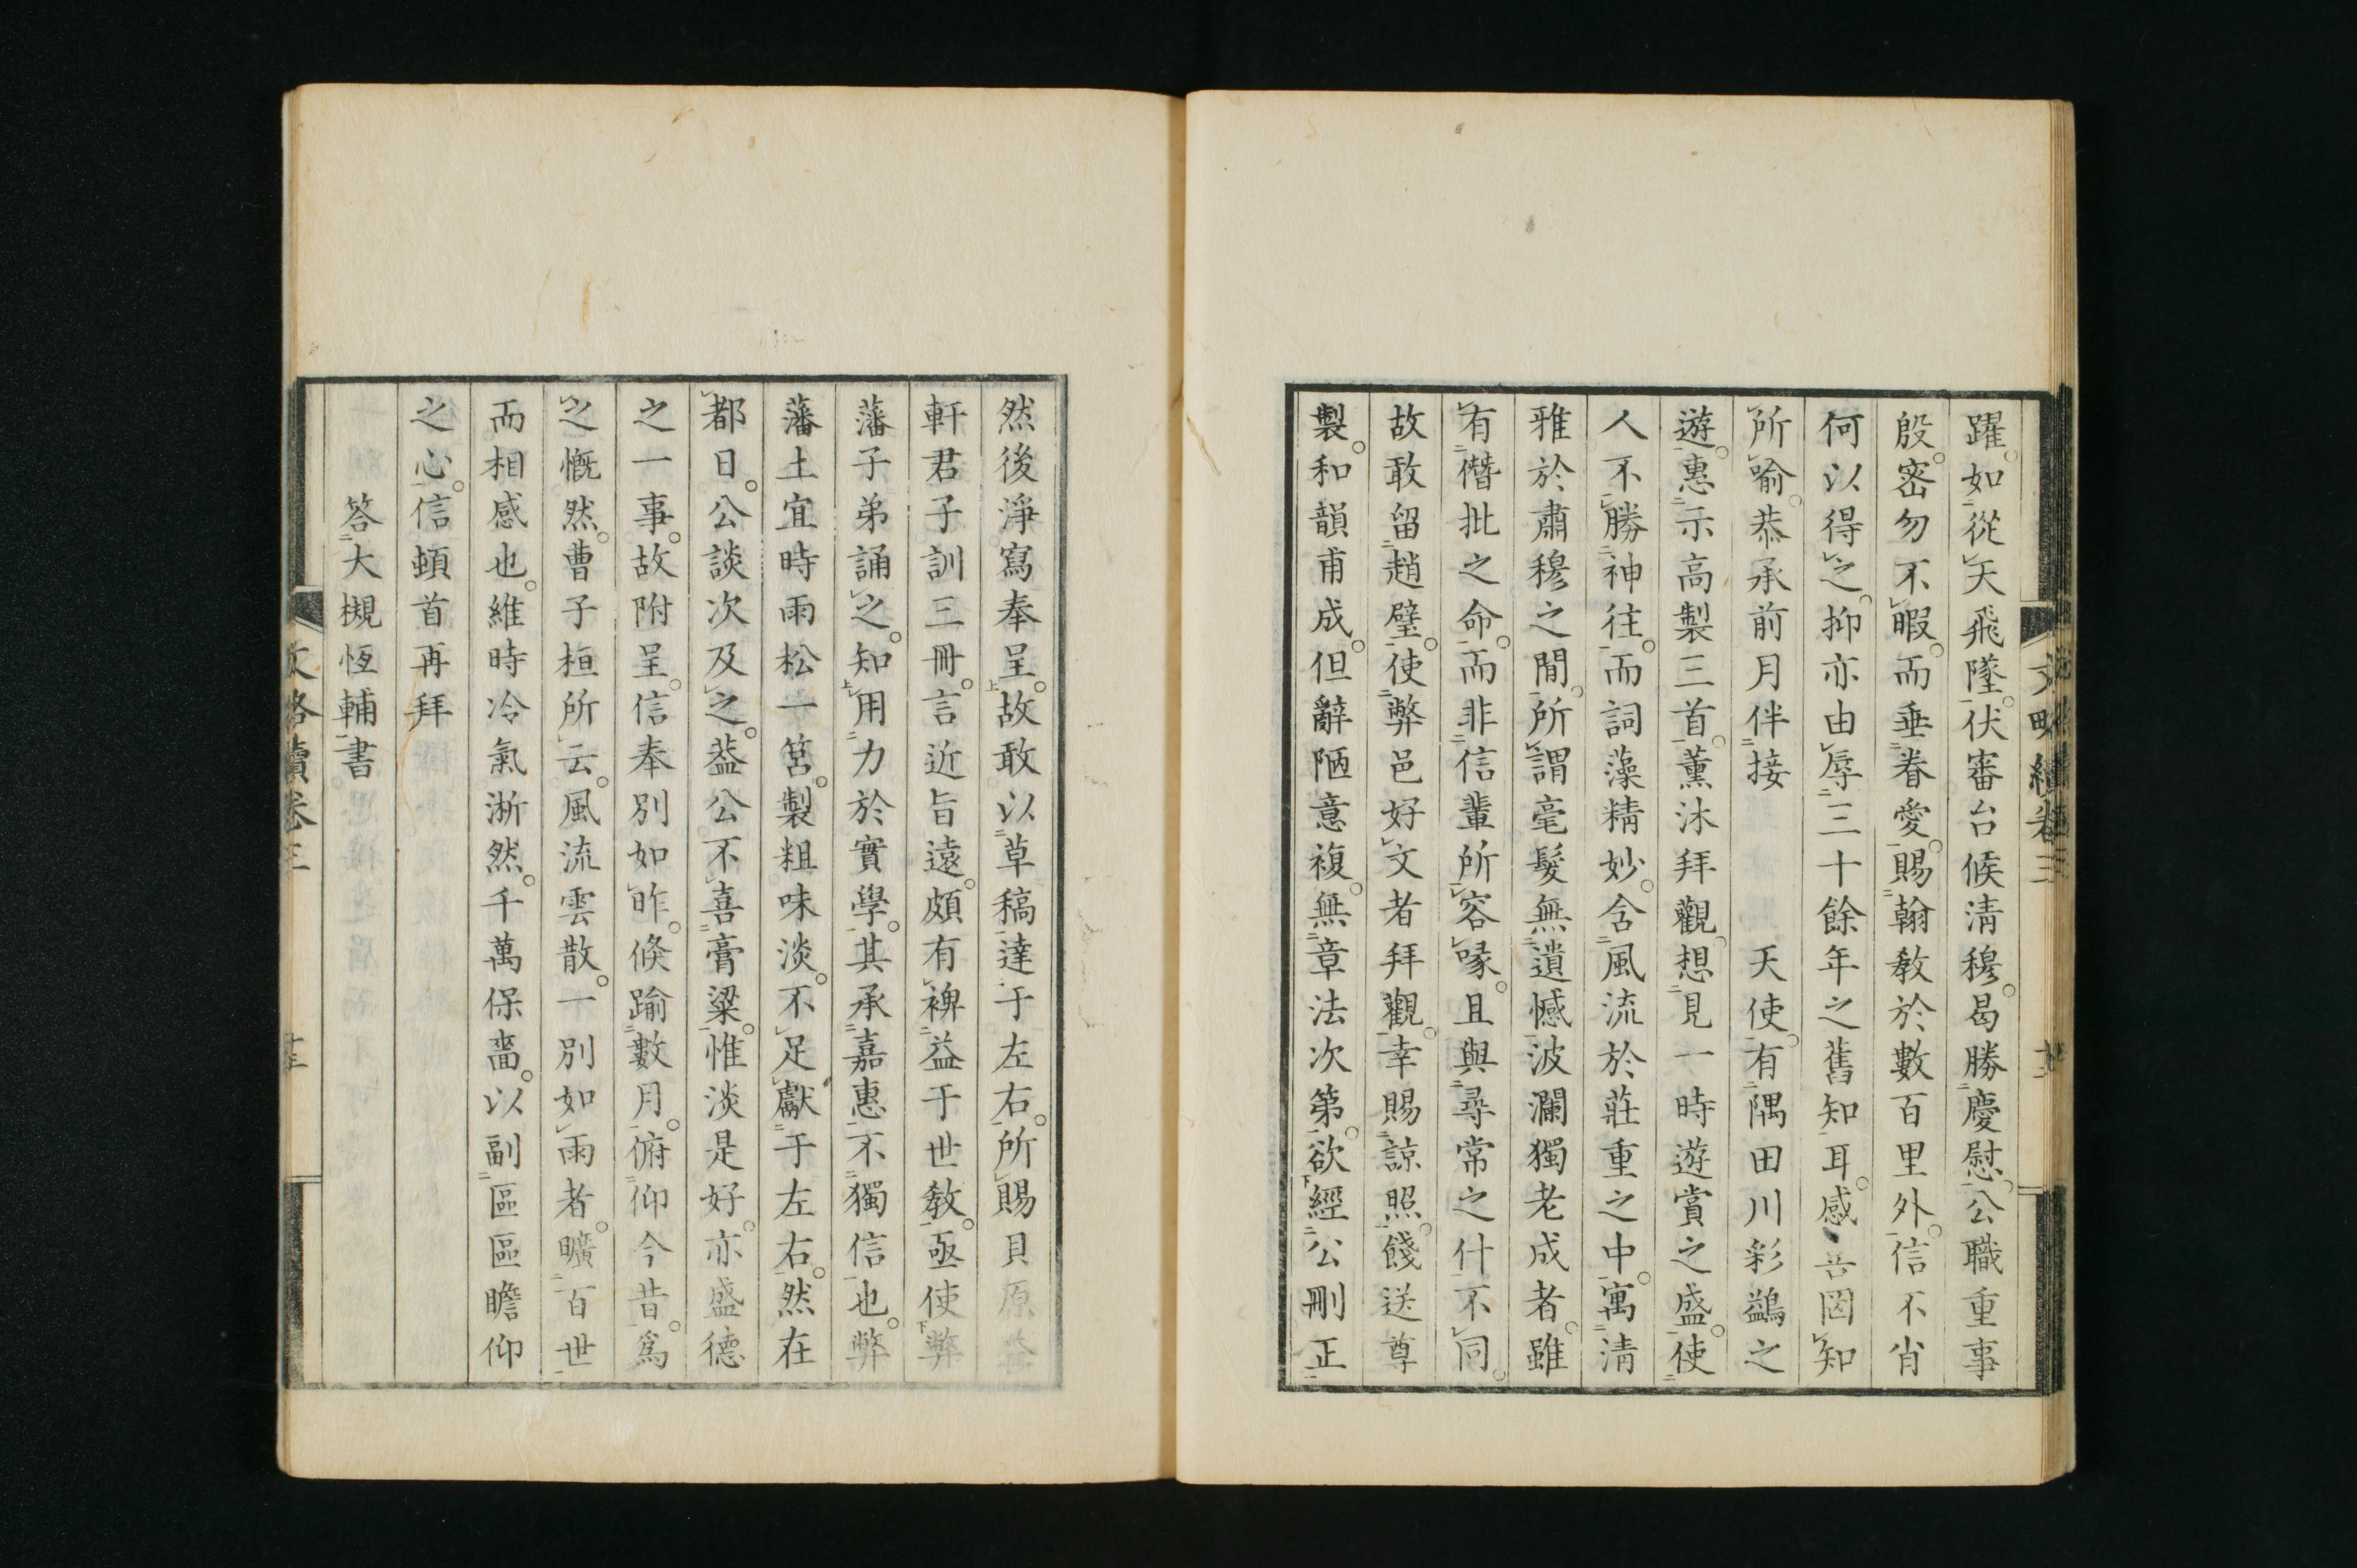 躍。如從天飛墜。伏審台候淸穆。曷勝慶慰。公職重事
殷。密勿不暇。而垂眷愛。賜翰教於數百里外。信不肖
何以得之。抑亦由辱三十餘年之舊知耳。感 罔知
所喻。恭承前月伴接 天使。有隅田川彩鷁之
遊。惠示高製三首。薰沐拜觀。想見一時遊賞之盛。使
人不勝神往。而詞藻精妙。含風流於莊重之中。寓淸
雅於肅穆之間。所謂毫髮無遺憾波瀾獨老成者。雖
有僭批之命。而非信輩所容喙。且與尋常之什不同。
故敢留趙璧。使弊邑好文者拜觀。幸賜諒照。餞送尊
製。和韻甫成。但辭陋意複。無章法次第。欲經公刪正
文略續卷三
然後淨寫奉呈。故敢以草稿達于左右。所賜貝原益
軒君子訓三冊。言近旨遠。頗有裨益于世教。亟使弊
藩子弟誦之。知用力於實學。其承嘉惠不獨信也。弊
藩土宜時雨松一筥。製粗味淡。不足獻于左右。然在
都日。公談次及之。葢公不喜膏粱。惟淡是好。亦盛德
之一事。故附呈。信奉別如昨。倏踰數月。俯仰今昔。爲
之慨然。曹子桓所云。風流雲散。一別如雨者。曠百世
而相感也。維時冷氣淅然。千萬保嗇。以副區區瞻仰
之心。信頓首再拜
答大槻恆輔書
文略續卷三